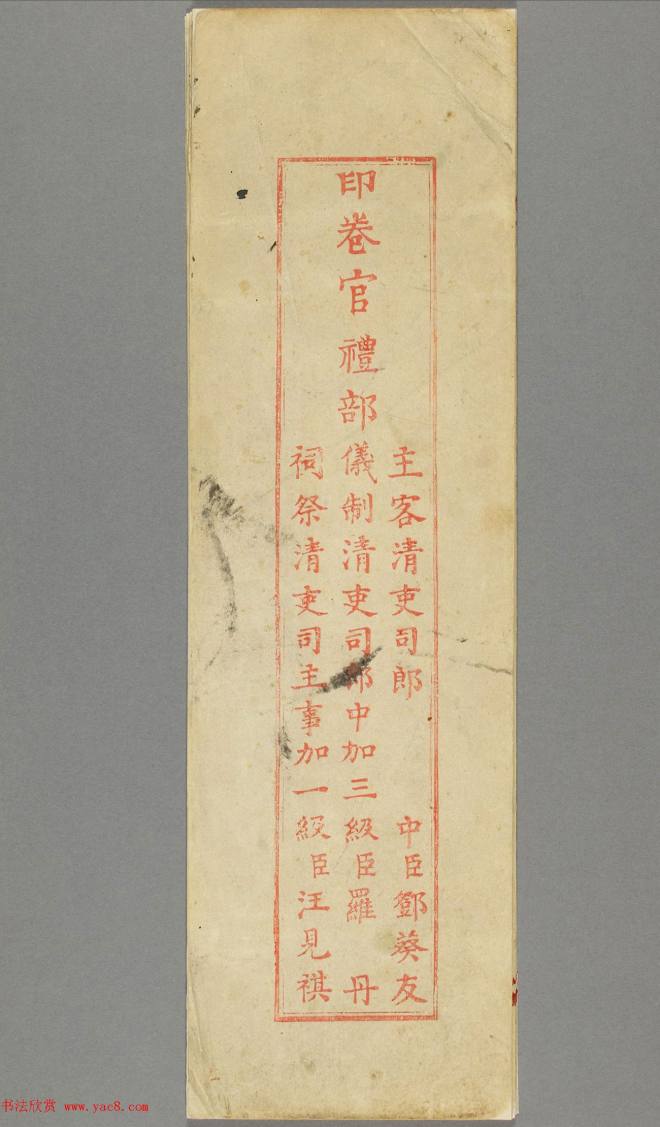 印卷官禮部
主客清吏司郎中臣鄧葵友
儀制清吏司郎中加三級臣羅丹
祠祭清吏司主事加一級臣汪見祺
书法欣赏 www.yac8.com